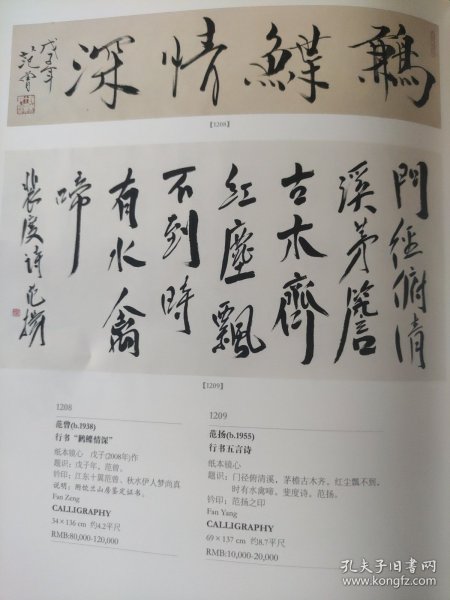 鶼鰈情深
戊子年
范曾
【1208】
門徑俯清
溪茅簷
古木齊
紅塵飄
不到時
有水禽
啼
裴度詩范揚
【1209】
1208
范曾(b.1938)
行书“鹣鲽情深”
纸本镜心 戊子(2008年)作
题识：戊子年，范曾。
钤印：江东十翼范曾、秋水伊人梦尚真
说明：附恍兰山房鉴定证书。
Fan Zeng
CALLIGRAPHY
34×136 cm 约4.2平尺
RMB:80,000-120,000
1209
范扬(b.1955)
行书五言诗
纸本镜心
题识：门径俯清溪，茅檐古木齐。红尘飘不到，
时有水禽啼。斐度诗。范扬。
钤印：范扬之印
Fan Yang
CALLIGRAPHY
69×137 cm 约8.7平尺
RMB:10,000-20,000
孔夫子旧书网
www.kongfz.com